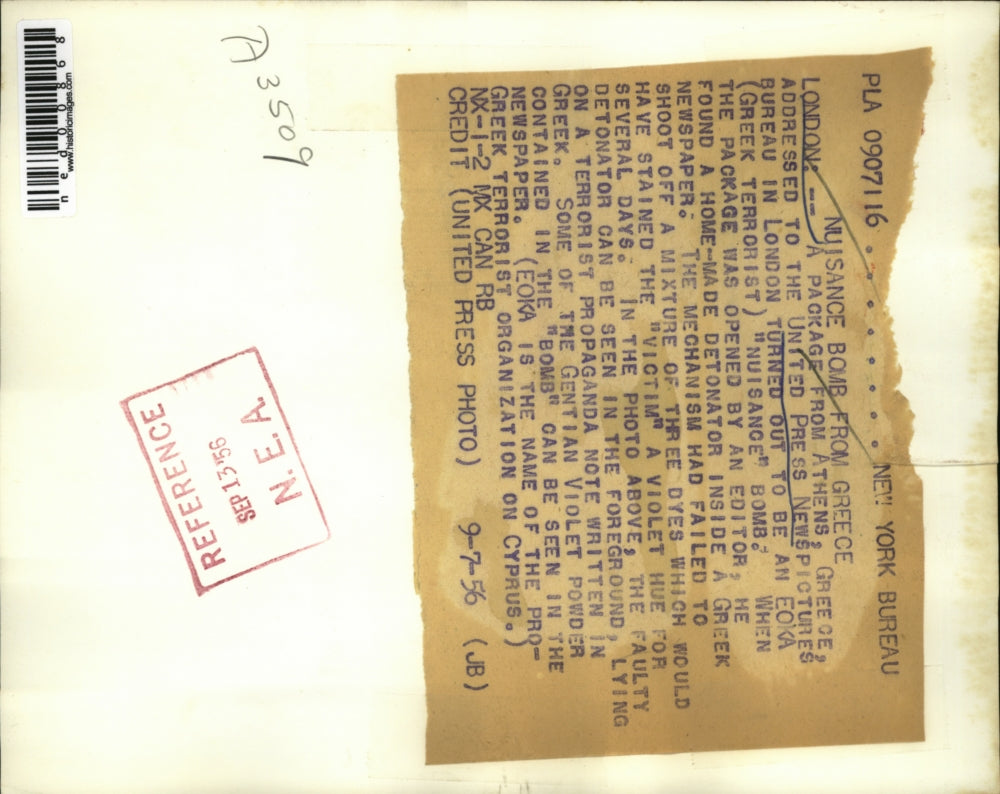 PLA 0907116 . . . . . . . . . NEW YORK BUREAU
NUISANCE BOMB FROM GREECE
LONDON. -- A PACKAGE FROM ATHENS, GREECE,
ADDRESSED TO THE UNITED PRESS NEWSPICTURES
BUREAU IN LONDON TURNED OUT TO BE AN EOKA
(GREEK TERRORIST) "NUISANCE" BOMB. WHEN
THE PACKAGE WAS OPENED BY AN EDITOR, HE
FOUND A HOME-MADE DETONATOR INSIDE A GREEK
NEWSPAPER. THE MECHANISM HAD FAILED TO
SHOOT OFF A MIXTURE OF THREE DYES WHICH WOULD
HAVE STAINED THE "VICTIM" A VIOLET HUE FOR
SEVERAL DAYS. IN THE PHOTO ABOVE, THE FAULTY
DETONATOR CAN BE SEEN IN THE FOREGROUND, LYING
ON A TERRORIST PROPAGANDA NOTE WRITTEN IN
GREEK. SOME OF THE GENTIAN VIOLET POWDER
CONTAINED IN THE "BOMB" CAN BE SEEN IN THE
NEWSPAPER. (EOKA IS THE NAME OF THE PRO-
GREEK TERRORIST ORGANIZATION ON CYPRUS.)
NX-1-2 MX CAN RB
CREDIT (UNITED PRESS PHOTO) 9-7-56 (JB)
A 3509
REFERENCE
SEP 13 '56
N.E.A.
www.historicimages.com
ned00868